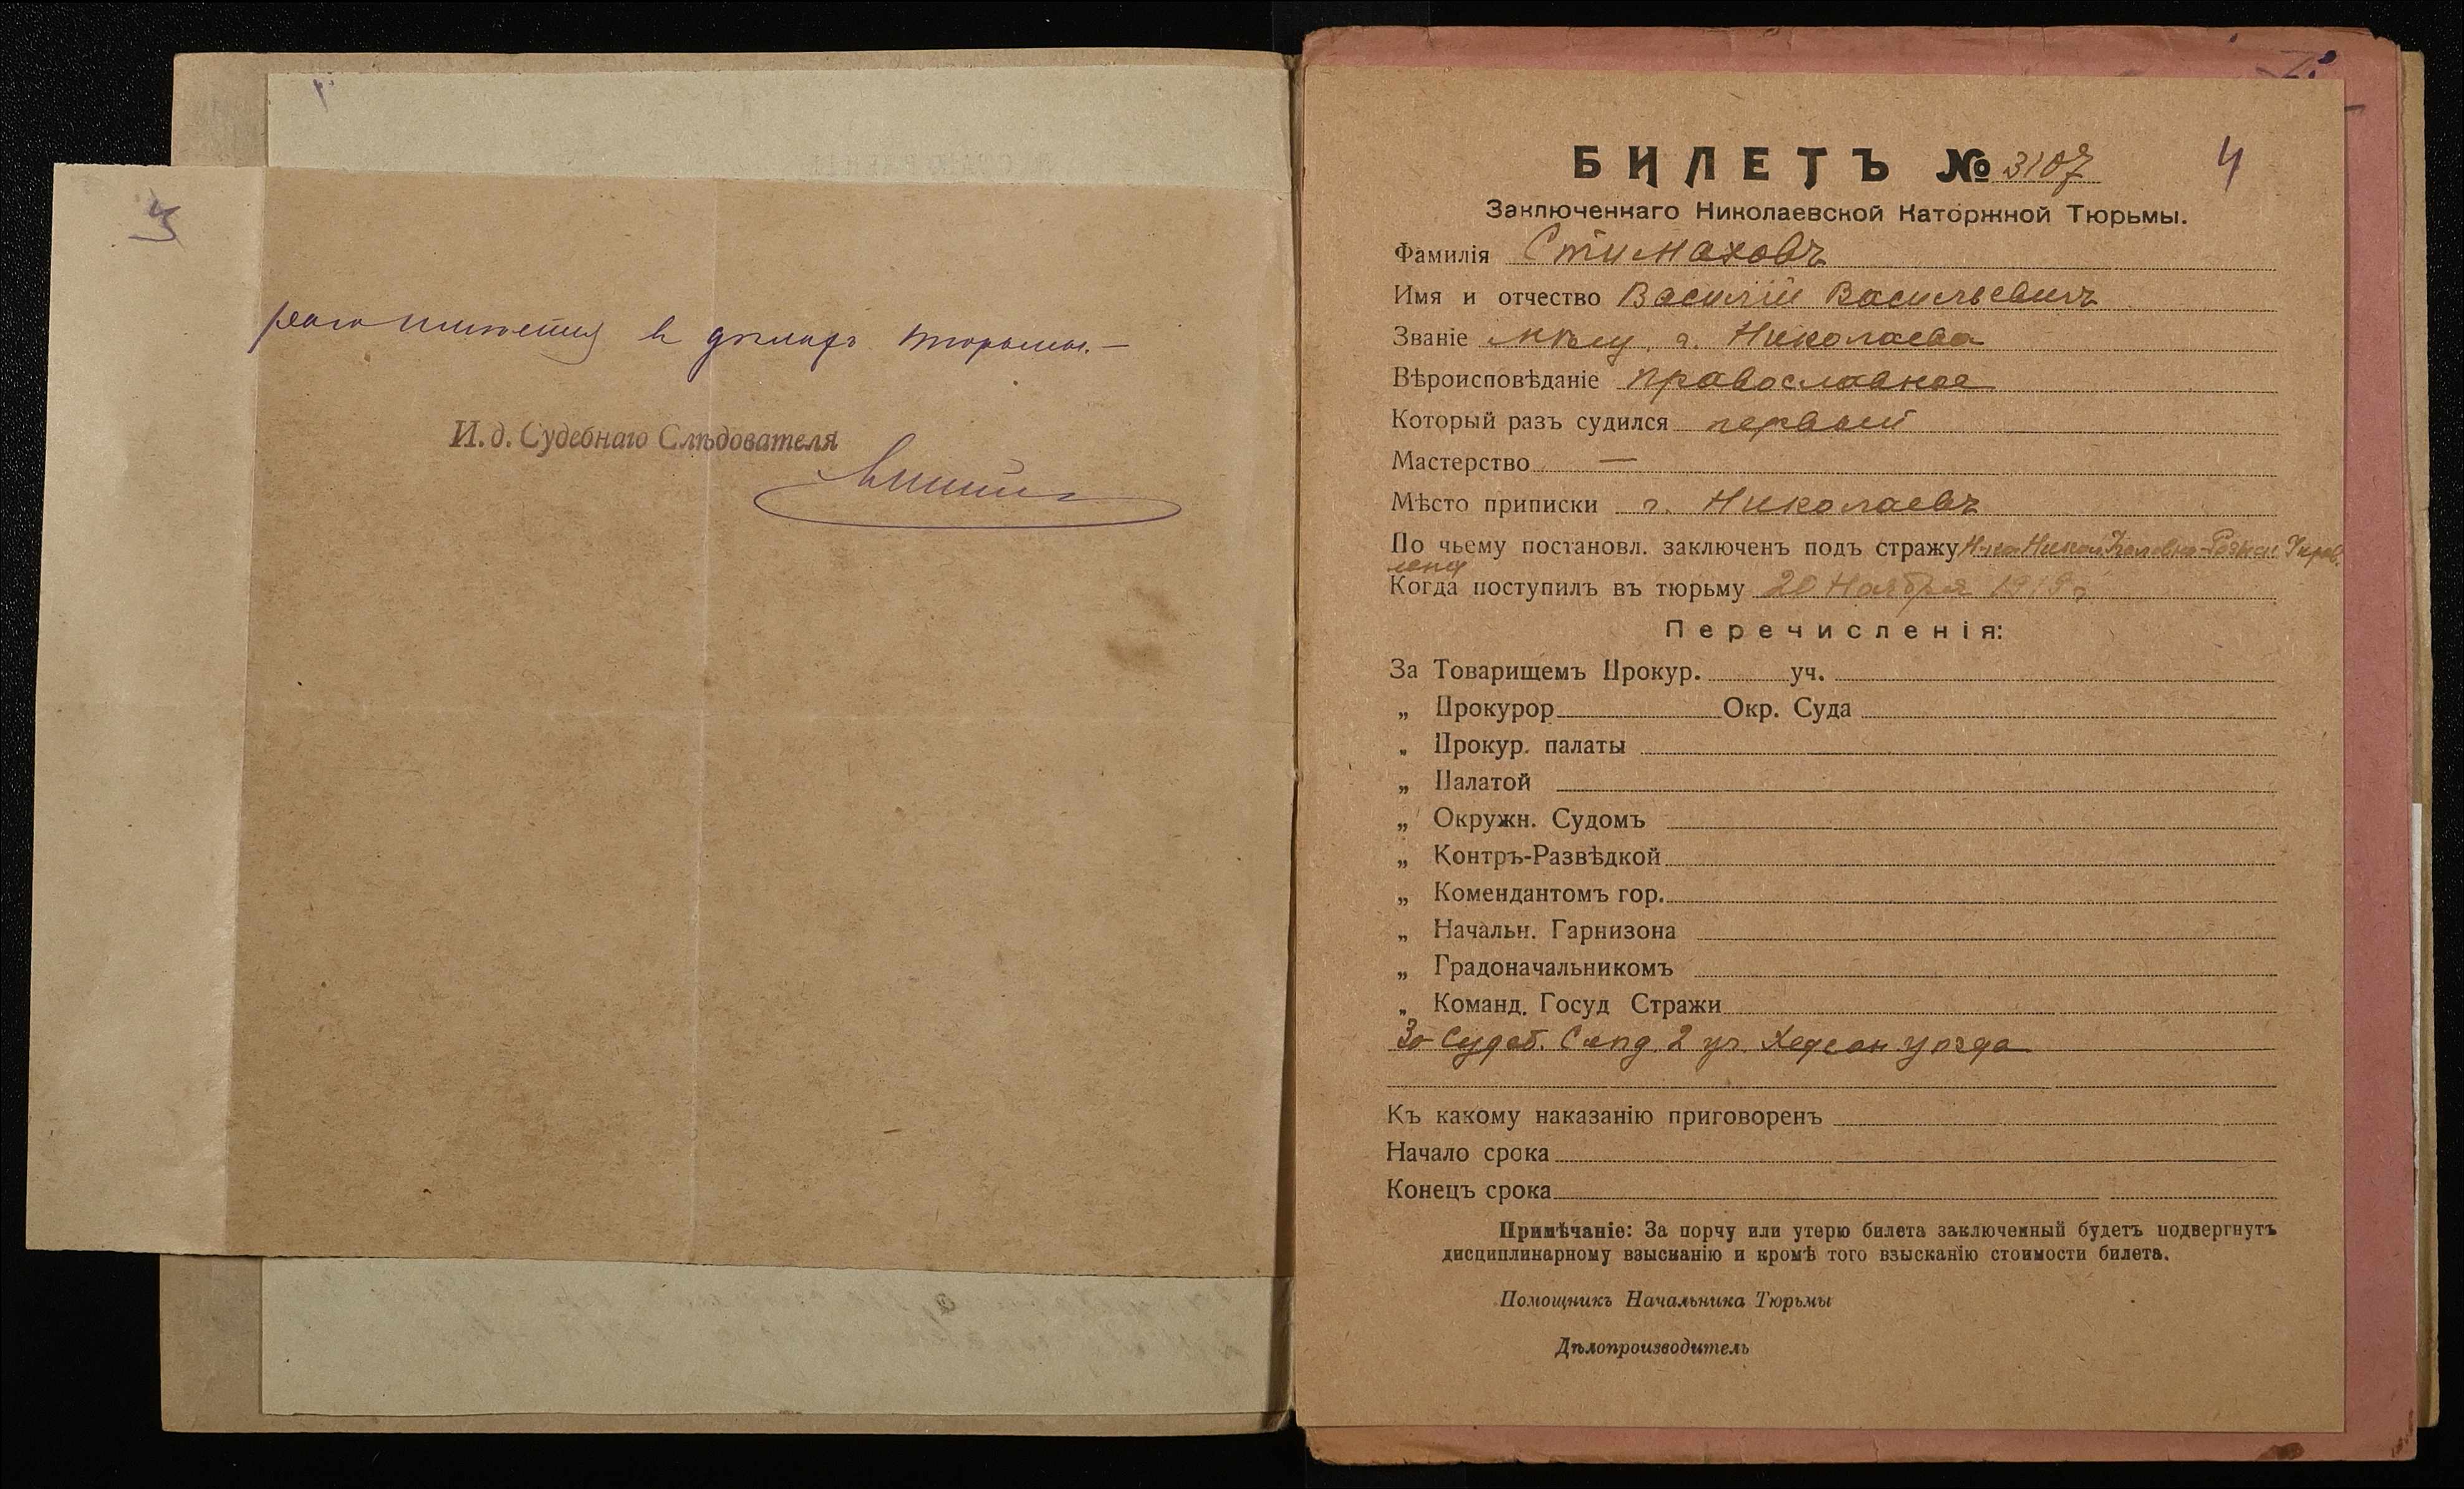 3
имеется в делахъ тюрьмы.—
И. д. Судебнаго Слѣдователя
4
БИЛЕТЪ № 3107
Заключеннаго Николаевской Каторжной Тюрьмы.
Фамилія Стимаховъ
Имя и отчество Василій Васильевичъ
Званіе мѣщ. г. Николаева
Вѣроисповѣданіе православное
Который разъ судился первый
Мастерство —
Мѣсто приписки г. Николаевъ
По чьему постановл. заключенъ подъ стражу Н-ка Никол. Уголовно-Розыск. Управ.
ленія
Когда поступилъ въ тюрьму 20 Ноября 1919 г.
Перечисленія:
За Товарищемъ Прокур. уч.
„ Прокурор Окр. Суда
„ Прокур. палаты
„ Палатой
„ Окружн. Судомъ
„ Контръ-Развѣдкой
„ Комендантомъ гор.
„ Начальн. Гарнизона
„ Градоначальникомъ
„ Команд. Госуд Стражи
За Судеб. Слѣд. 2 уч. Херсон уѣзда
Къ какому наказанію приговоренъ
Начало срока
Конецъ срока
Примѣчаніе: За порчу или утерю билета заключенный будетъ подвергнутъ
дисциплинарному взысканію и кромѣ того взысканію стоимости билета.
Помощникъ Начальника Тюрьмы
Дѣлопроизводитель